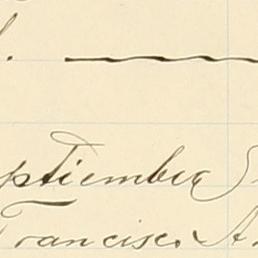 ptiember
Francisco A